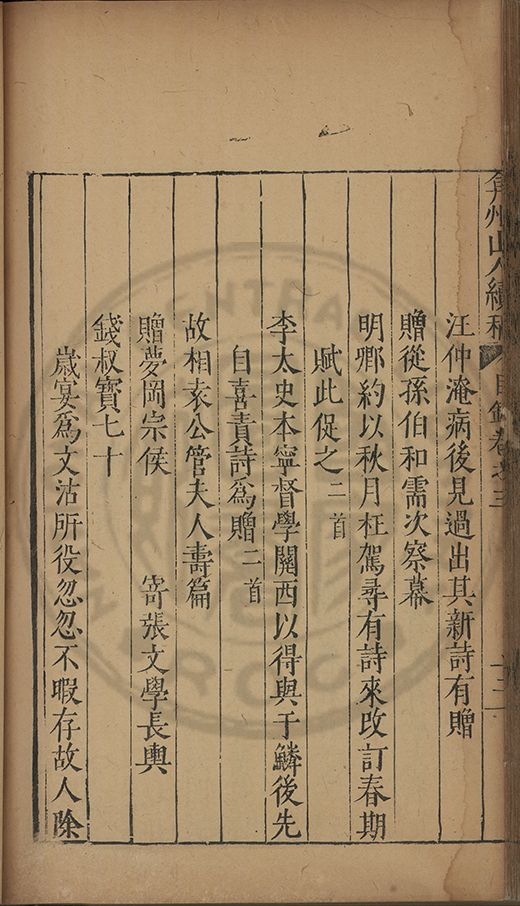 弇州山人續稿 目錄卷之三 十二
汪仲淹病後見過出其新詩有贈
贈從孫伯和需次察幕
明卿約以秋月枉駕尋有詩來改訂春期
賦此促之二首
李太史本寧督學關西以得與于鱗後先
自喜責詩為贈二首
故相袁公管夫人壽篇
贈夢岡宗侯 寄張文學長輿
錢叔寶七十
歲宴為文沽所役忽忽不暇存故人除